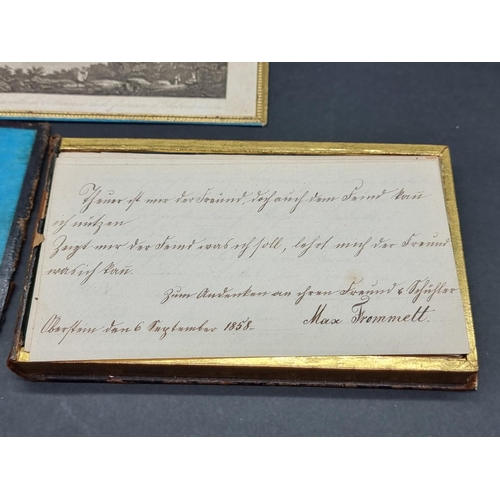 Theuer ist mir der Freund, doch auch dem Feind kan̄
ich nützen
Zeigt mir der Feind was ich soll, lehrt mich der Freund
was ich kan̄.
Zum Andenken an ihren Freund & Schühler
Oberstein den 6 September 1858.
Max Trommett.